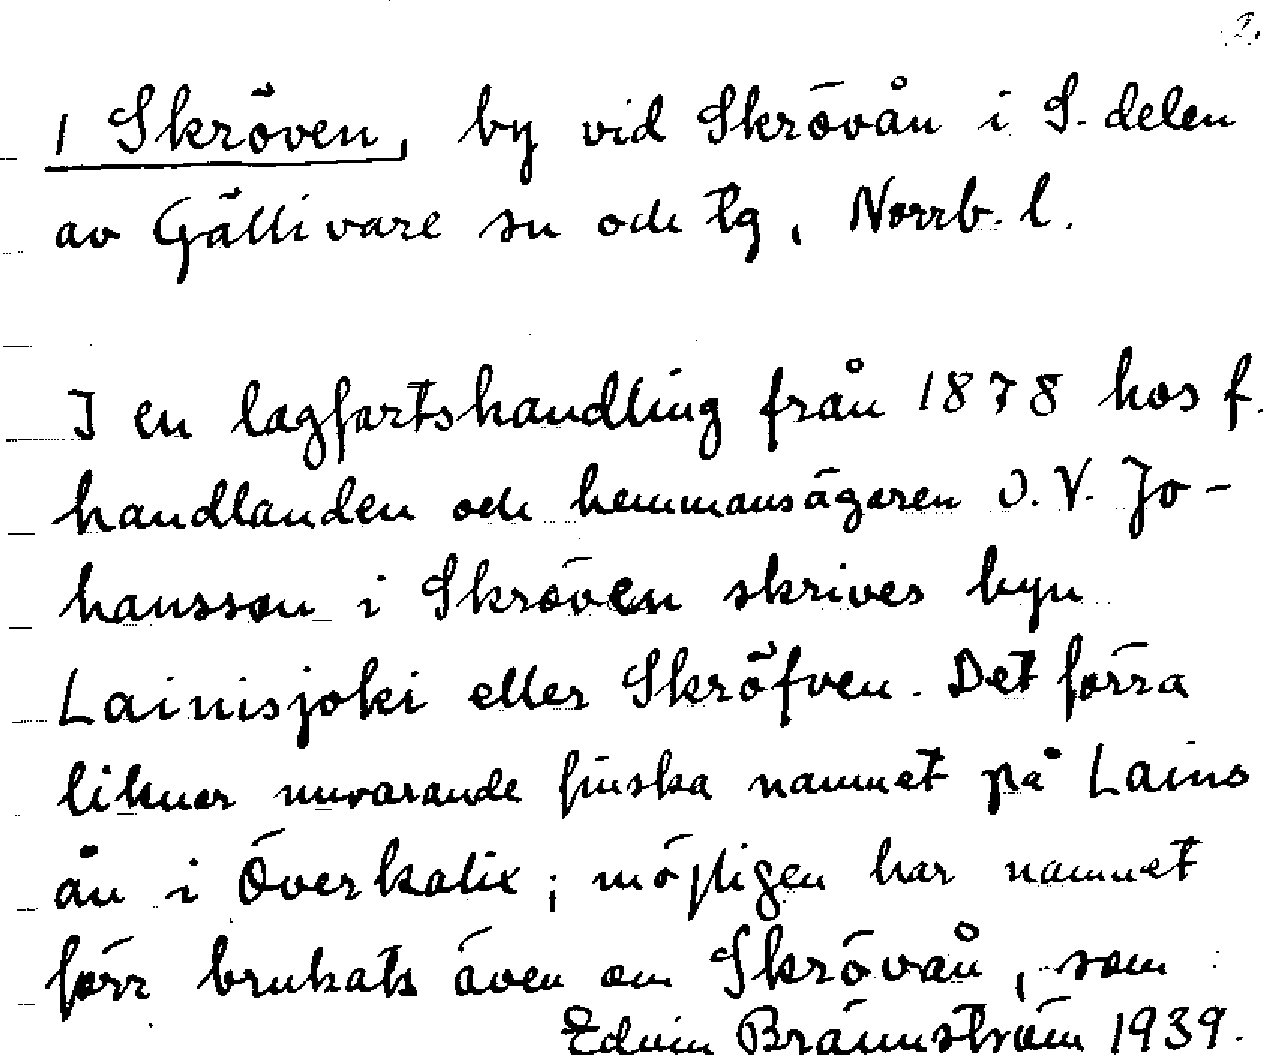 2.
1 Skröven, by vid Skrövån i S. delen
av Gällivare sn och tg, Norrb. l.
I en lagfartshandling från 1878 hos f.
handlanden och hemmansägaren O. V. Jo-
hansson i Skröven skrives byn
Lainisjoki eller Skröfven. Det förra
liknar nuvarande finska namnet på Lains
ån i Överkalix; möjligen har namnet
förr brukats även om Skrövån, som
Edvin Brännström 1939.